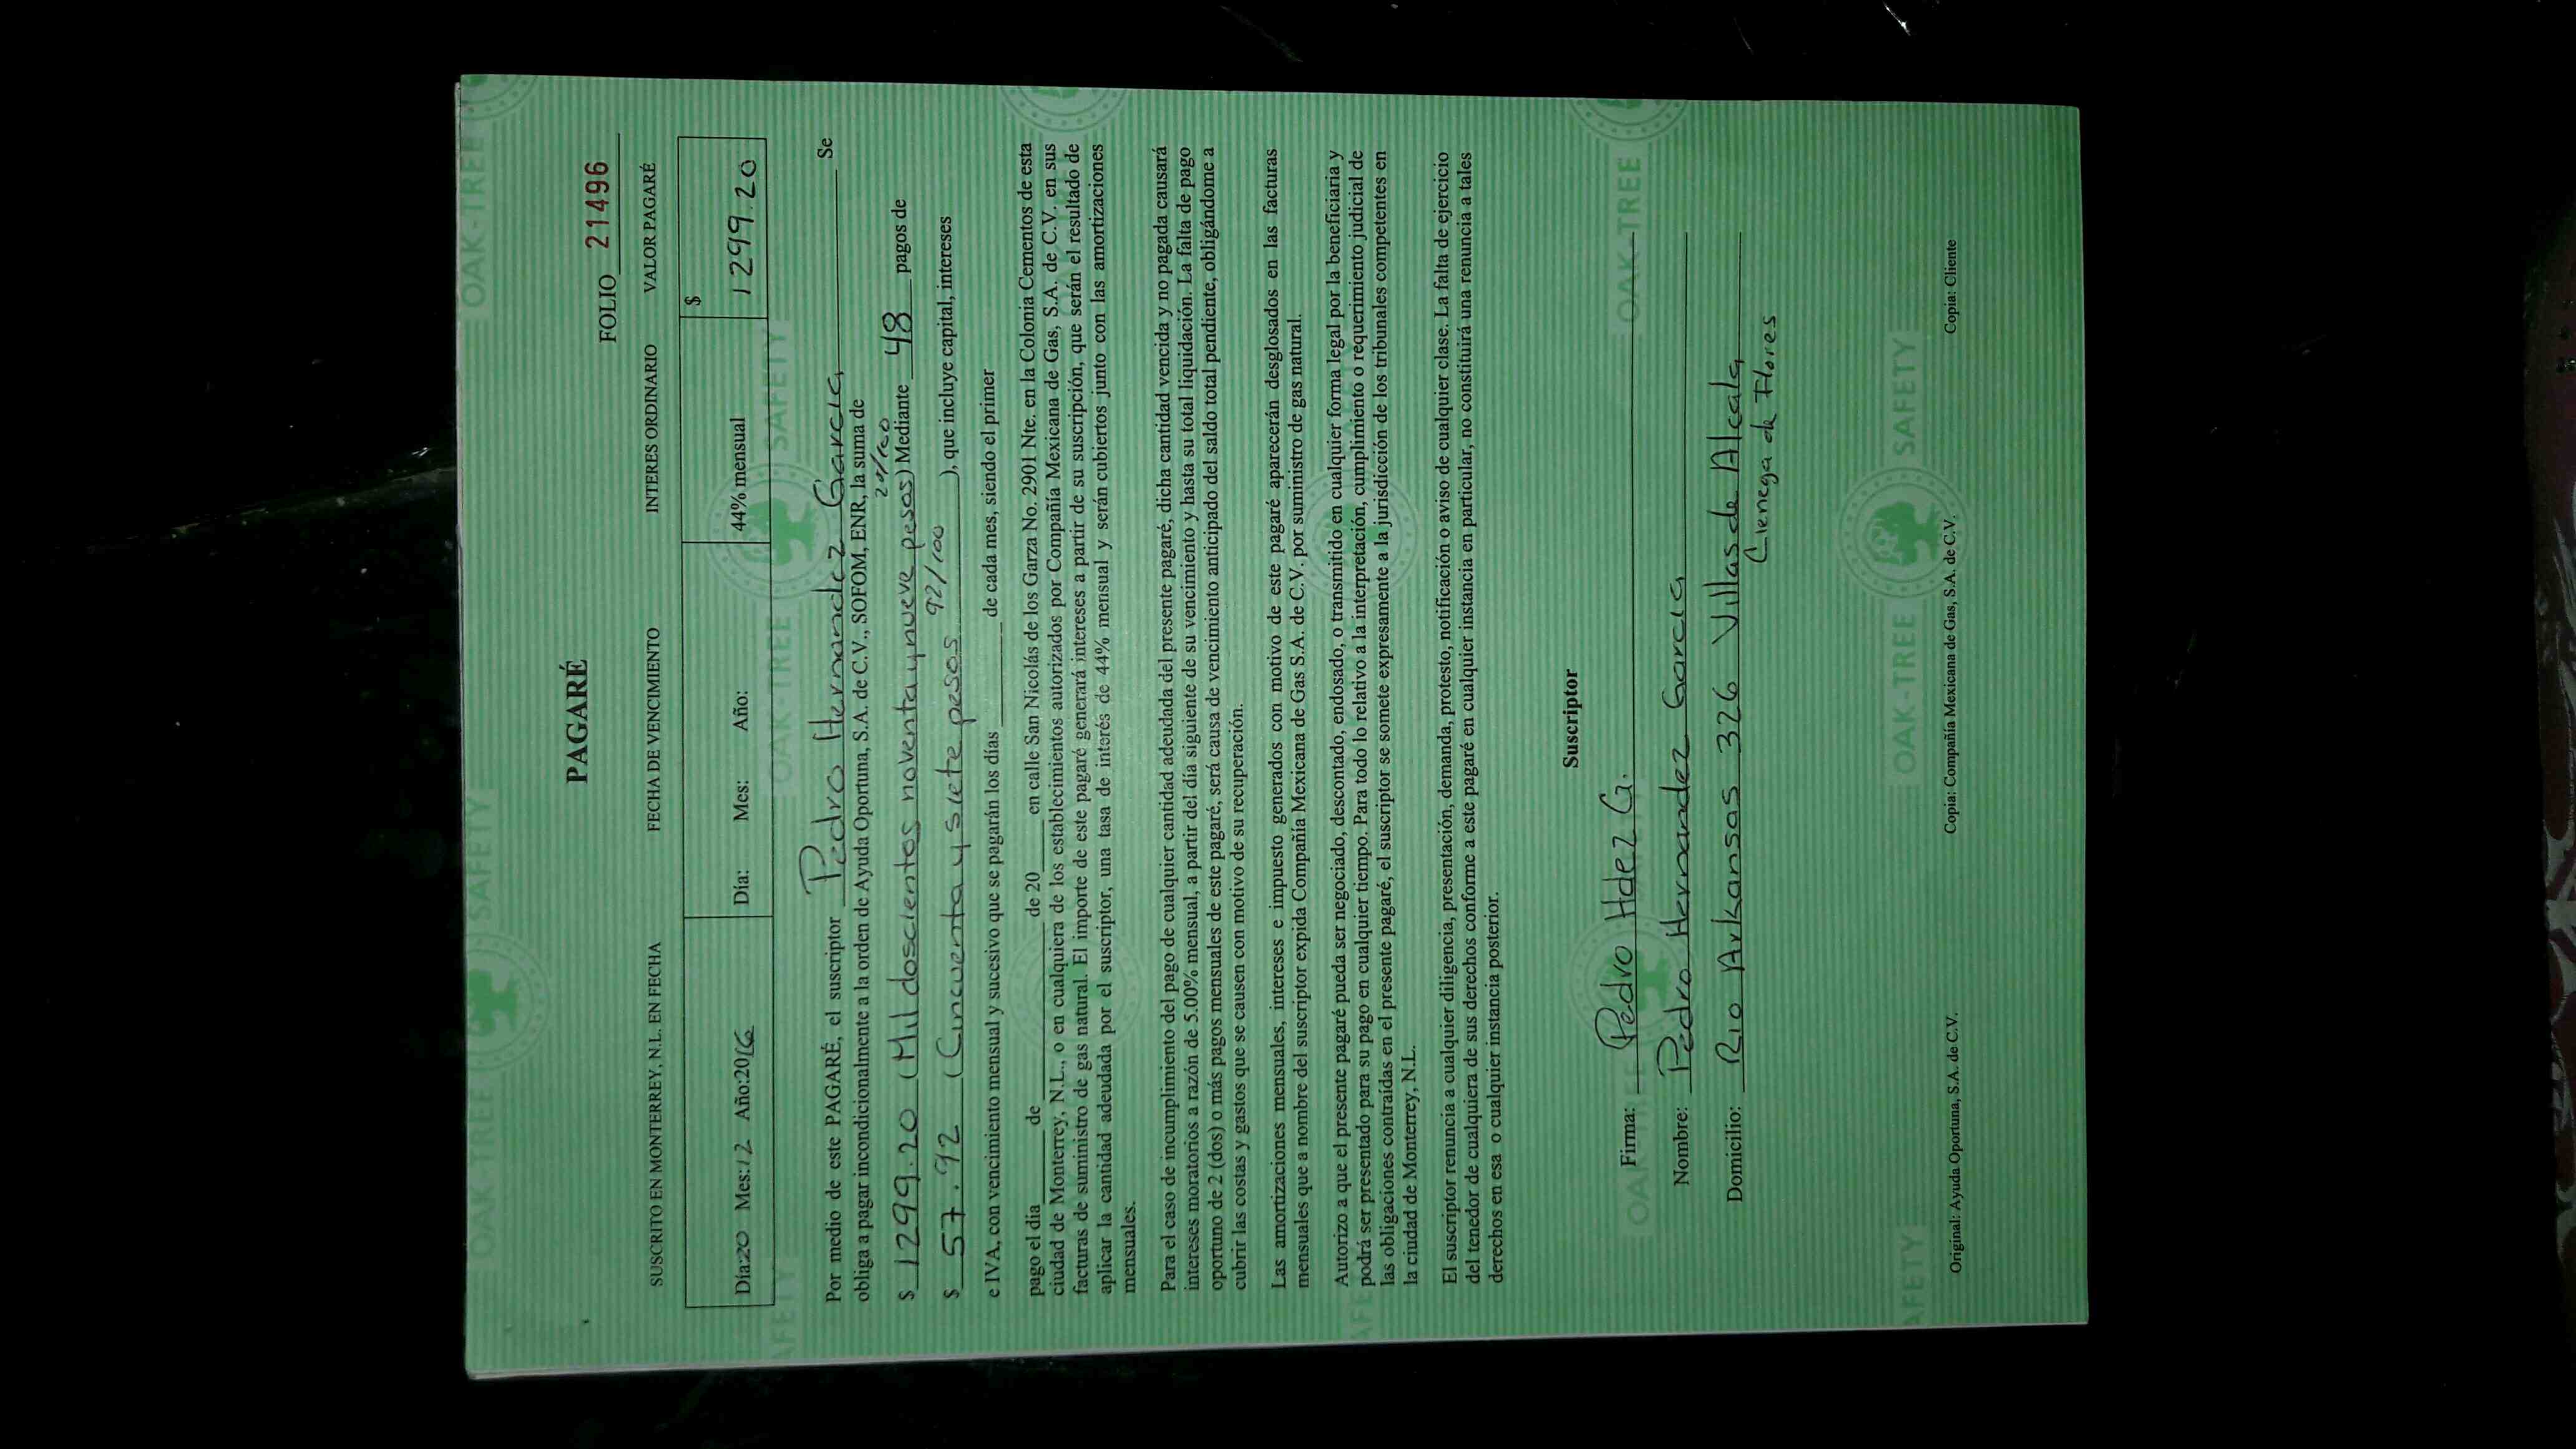 PAGARÉ
FOLIO 211496
SUSCRITO EN MONTERREY, N.L. EN FECHA FECHA DE VENCIMIENTO INTERES ORDINARIO VALOR PAGARÉ
Día:20 Mes:12 Año:2016 Día: Mes: Año: 44% mensual $ 1299.20
Por medio de este PAGARÉ, el suscriptor Pedro Hernandez Garcia Se
obliga a pagar incondicionalmente a la orden de Ayuda Oportuna, S.A. de C.V., SOFOM, ENR, la suma de
$ 1299.20 (Mil doscientos noventa y nueve pesos 20/100) Mediante 48 pagos de
$ 57.92 (Cincuenta y siete pesos 92/100), que incluye capital, intereses
e IVA, con vencimiento mensual y sucesivo que se pagarán los días de cada mes, siendo el primer
pago el dia de de 20 en calle San Nicolás de los Garza No. 2901 Nte. en la Colonia Cementos de esta
ciudad de Monterrey, N.L., o en cualquiera de los establecimientos autorizados por Compañía Mexicana de Gas, S.A. de C.V. en sus
facturas de suministro de gas natural. El importe de este pagaré generará intereses a partir de su suscripción, que serán el resultado de
aplicar la cantidad adeudada por el suscriptor, una tasa de interés de 44% mensual y serán cubiertos junto con las amortizaciones
mensuales.
Para el caso de incumplimiento del pago de cualquier cantidad adeudada del presente pagaré, dicha cantidad vencida y no pagada causará
intereses moratorios a razón de 5.00% mensual, a partir del día siguiente de su vencimiento y hasta su total liquidación. La falta de pago
oportuno de 2 (dos) o más pagos mensuales de este pagaré, será causa de vencimiento anticipado del saldo total pendiente, obligándome a
cubrir las costas y gastos que se causen con motivo de su recuperación.
Las amortizaciones mensuales, intereses e impuesto generados con motivo de este pagaré aparecerán desglosados en las facturas
mensuales que a nombre del suscriptor expida Compañía Mexicana de Gas S.A. de C.V. por suministro de gas natural.
Autorizo a que el presente pagaré pueda ser negociado, descontado, endosado, o transmitido en cualquier forma legal por la beneficiaria y
podrá ser presentado para su pago en cualquier tiempo. Para todo lo relativo a la interpretación, cumplimiento o requerimiento judicial de
las obligaciones contraídas en el presente pagaré, el suscriptor se somete expresamente a la jurisdicción de los tribunales competentes en
la ciudad de Monterrey, N.L.
El suscriptor renuncia a cualquier diligencia, presentación, demanda, protesto, notificación o aviso de cualquier clase. La falta de ejercicio
del tenedor de cualquiera de sus derechos conforme a este pagaré en cualquier instancia en particular, no constituirá una renuncia a tales
derechos en esa o cualquier instancia posterior.
Suscriptor
Firma: Pedro Hdez G.
Nombre: Pedro Hernandez Garcia
Domicilio: Rio Arkansas 326 Villas de Alcala
Cienega de Flores
Original: Ayuda Oportuna, S.A. de C.V. Copia: Compañía Mexicana de Gas, S.A. de C.V. Copia: Cliente